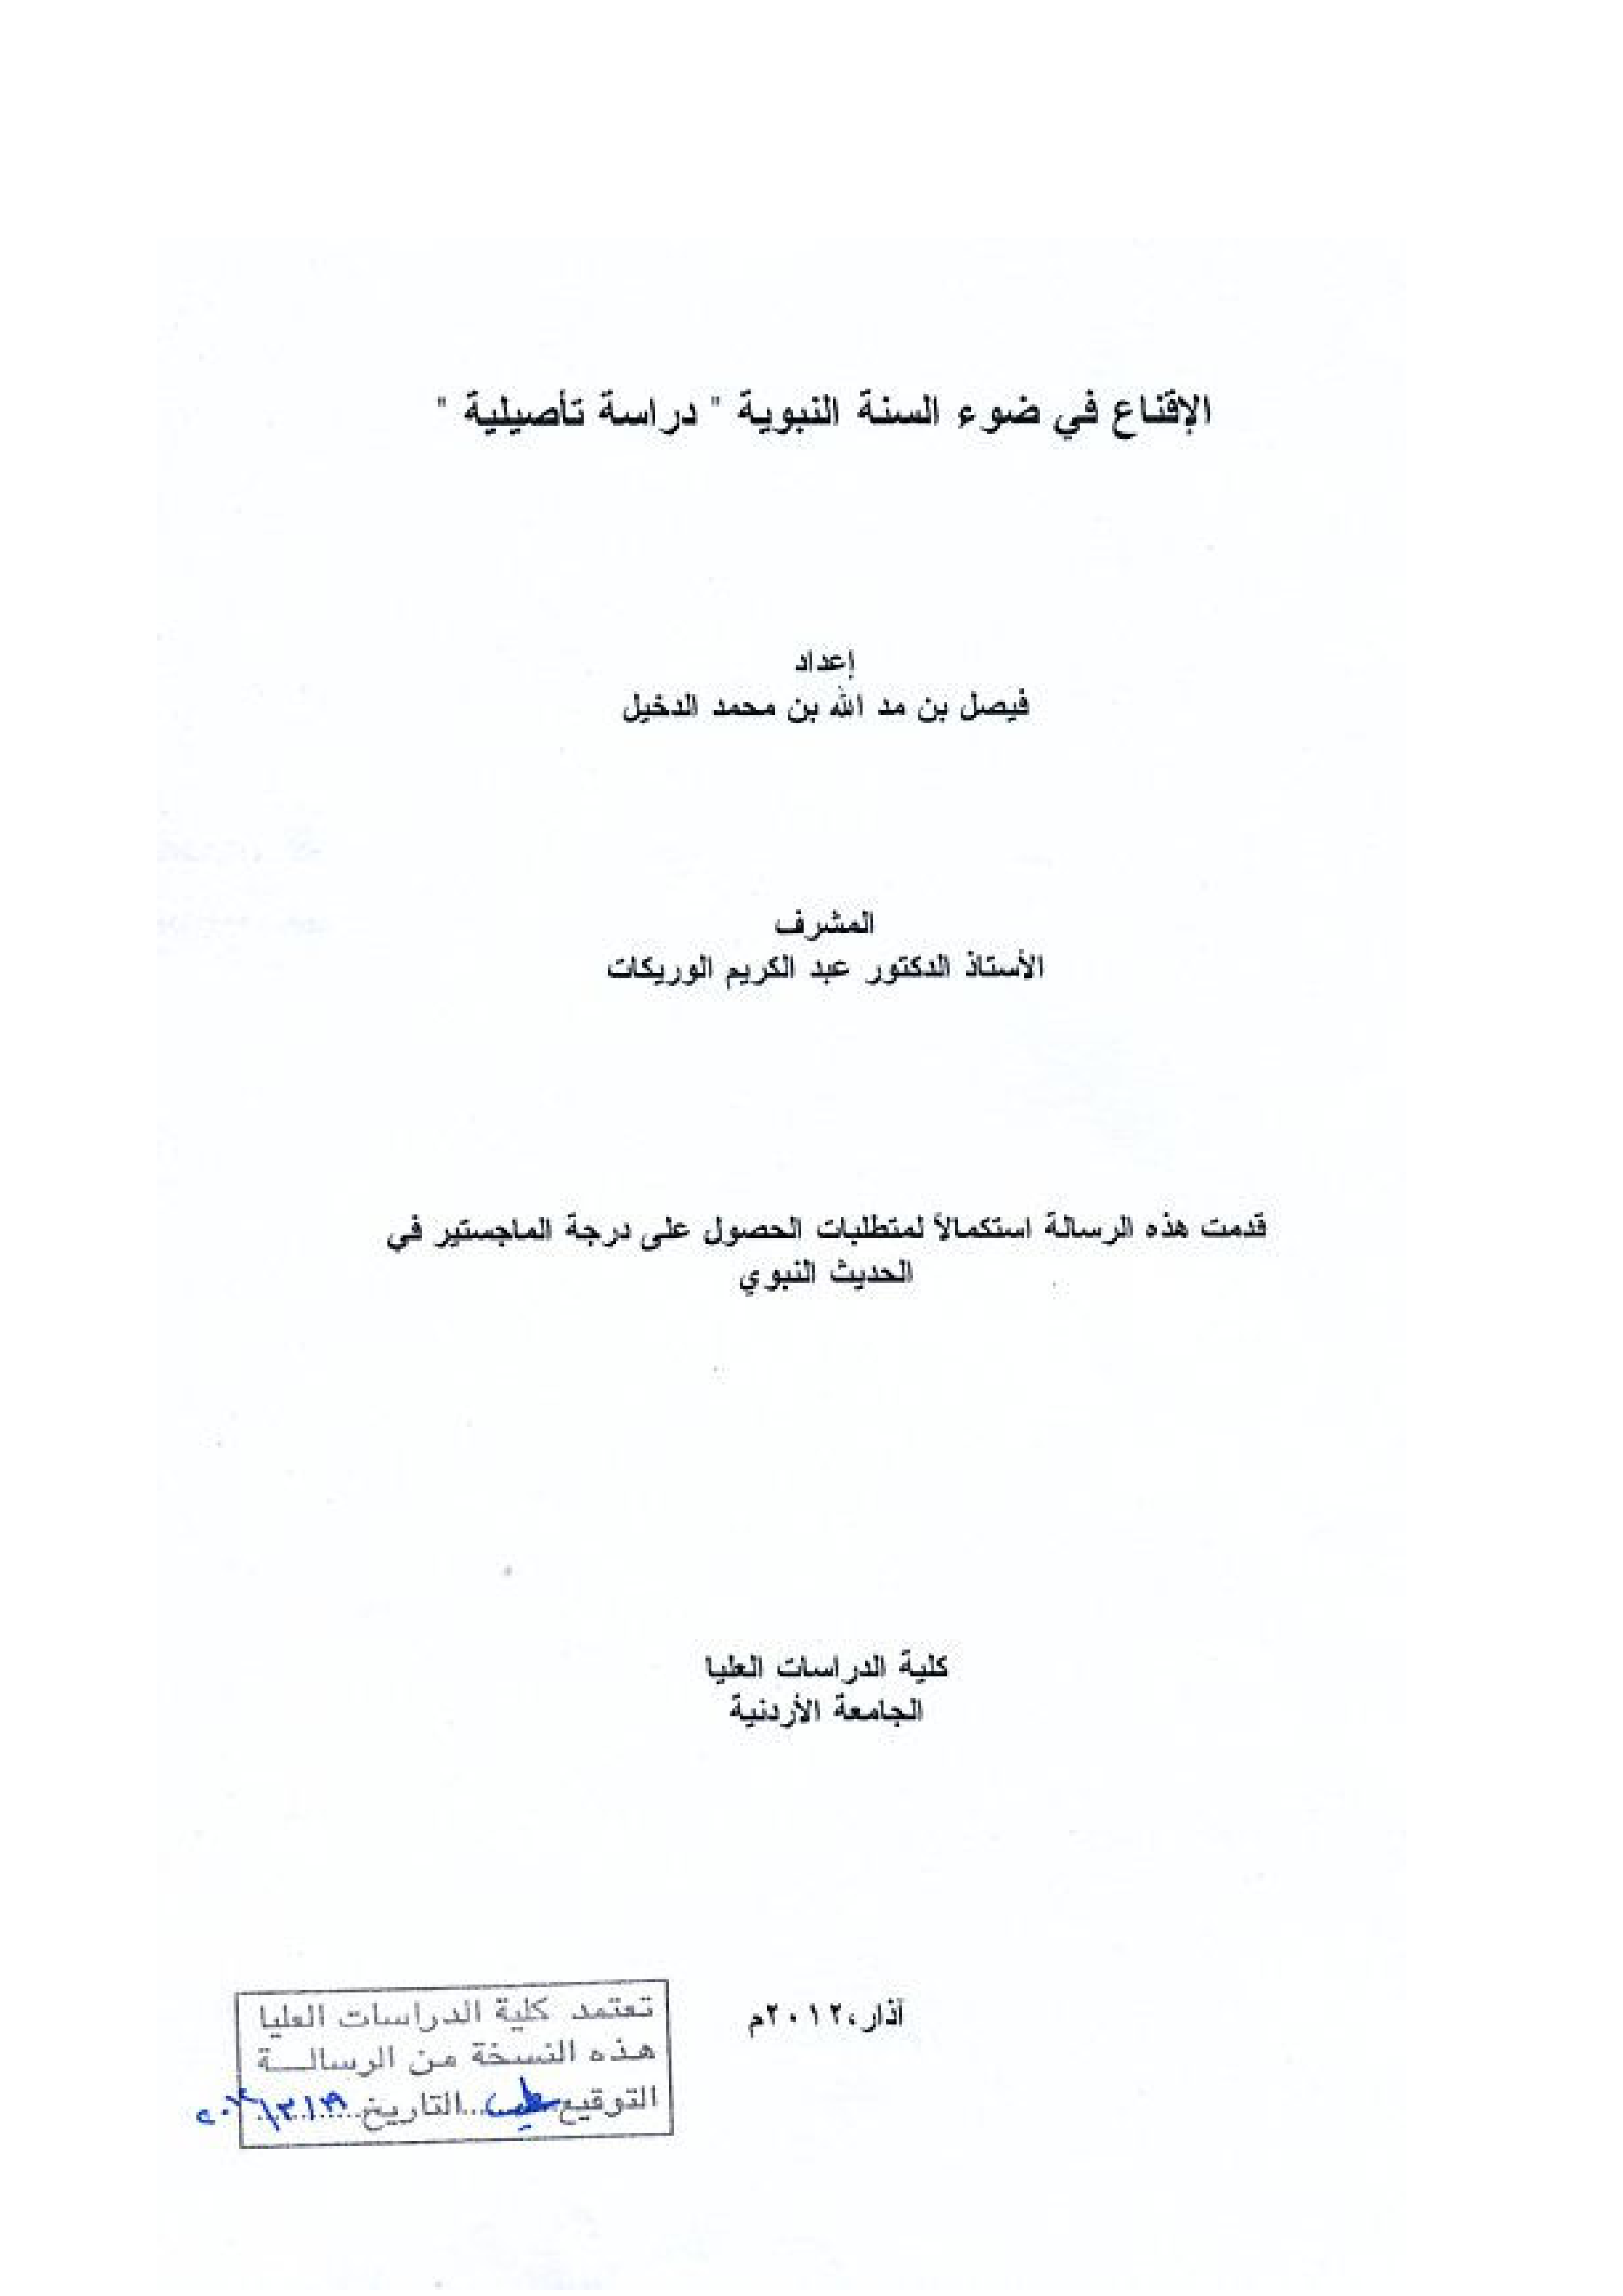 الإقناع في ضوء السنة النبوية " دراسة تأصيلية "
إعداد
فيصل بن مد الله بن محمد الدخيل
المشرف
الأستاذ الدكتور عبد الكريم الوريكات
قدمت هذه الرسالة استكمالاً لمتطلبات الحصول على درجة الماجستير في
الحديث النبوي
كلية الدراسات العليا
الجامعة الأردنية
آذار،٢٠١٢م
تعتمد كلية الدراسات العليا
هذه النسخة من الرسالــة
التوقيع......التاريخ.........